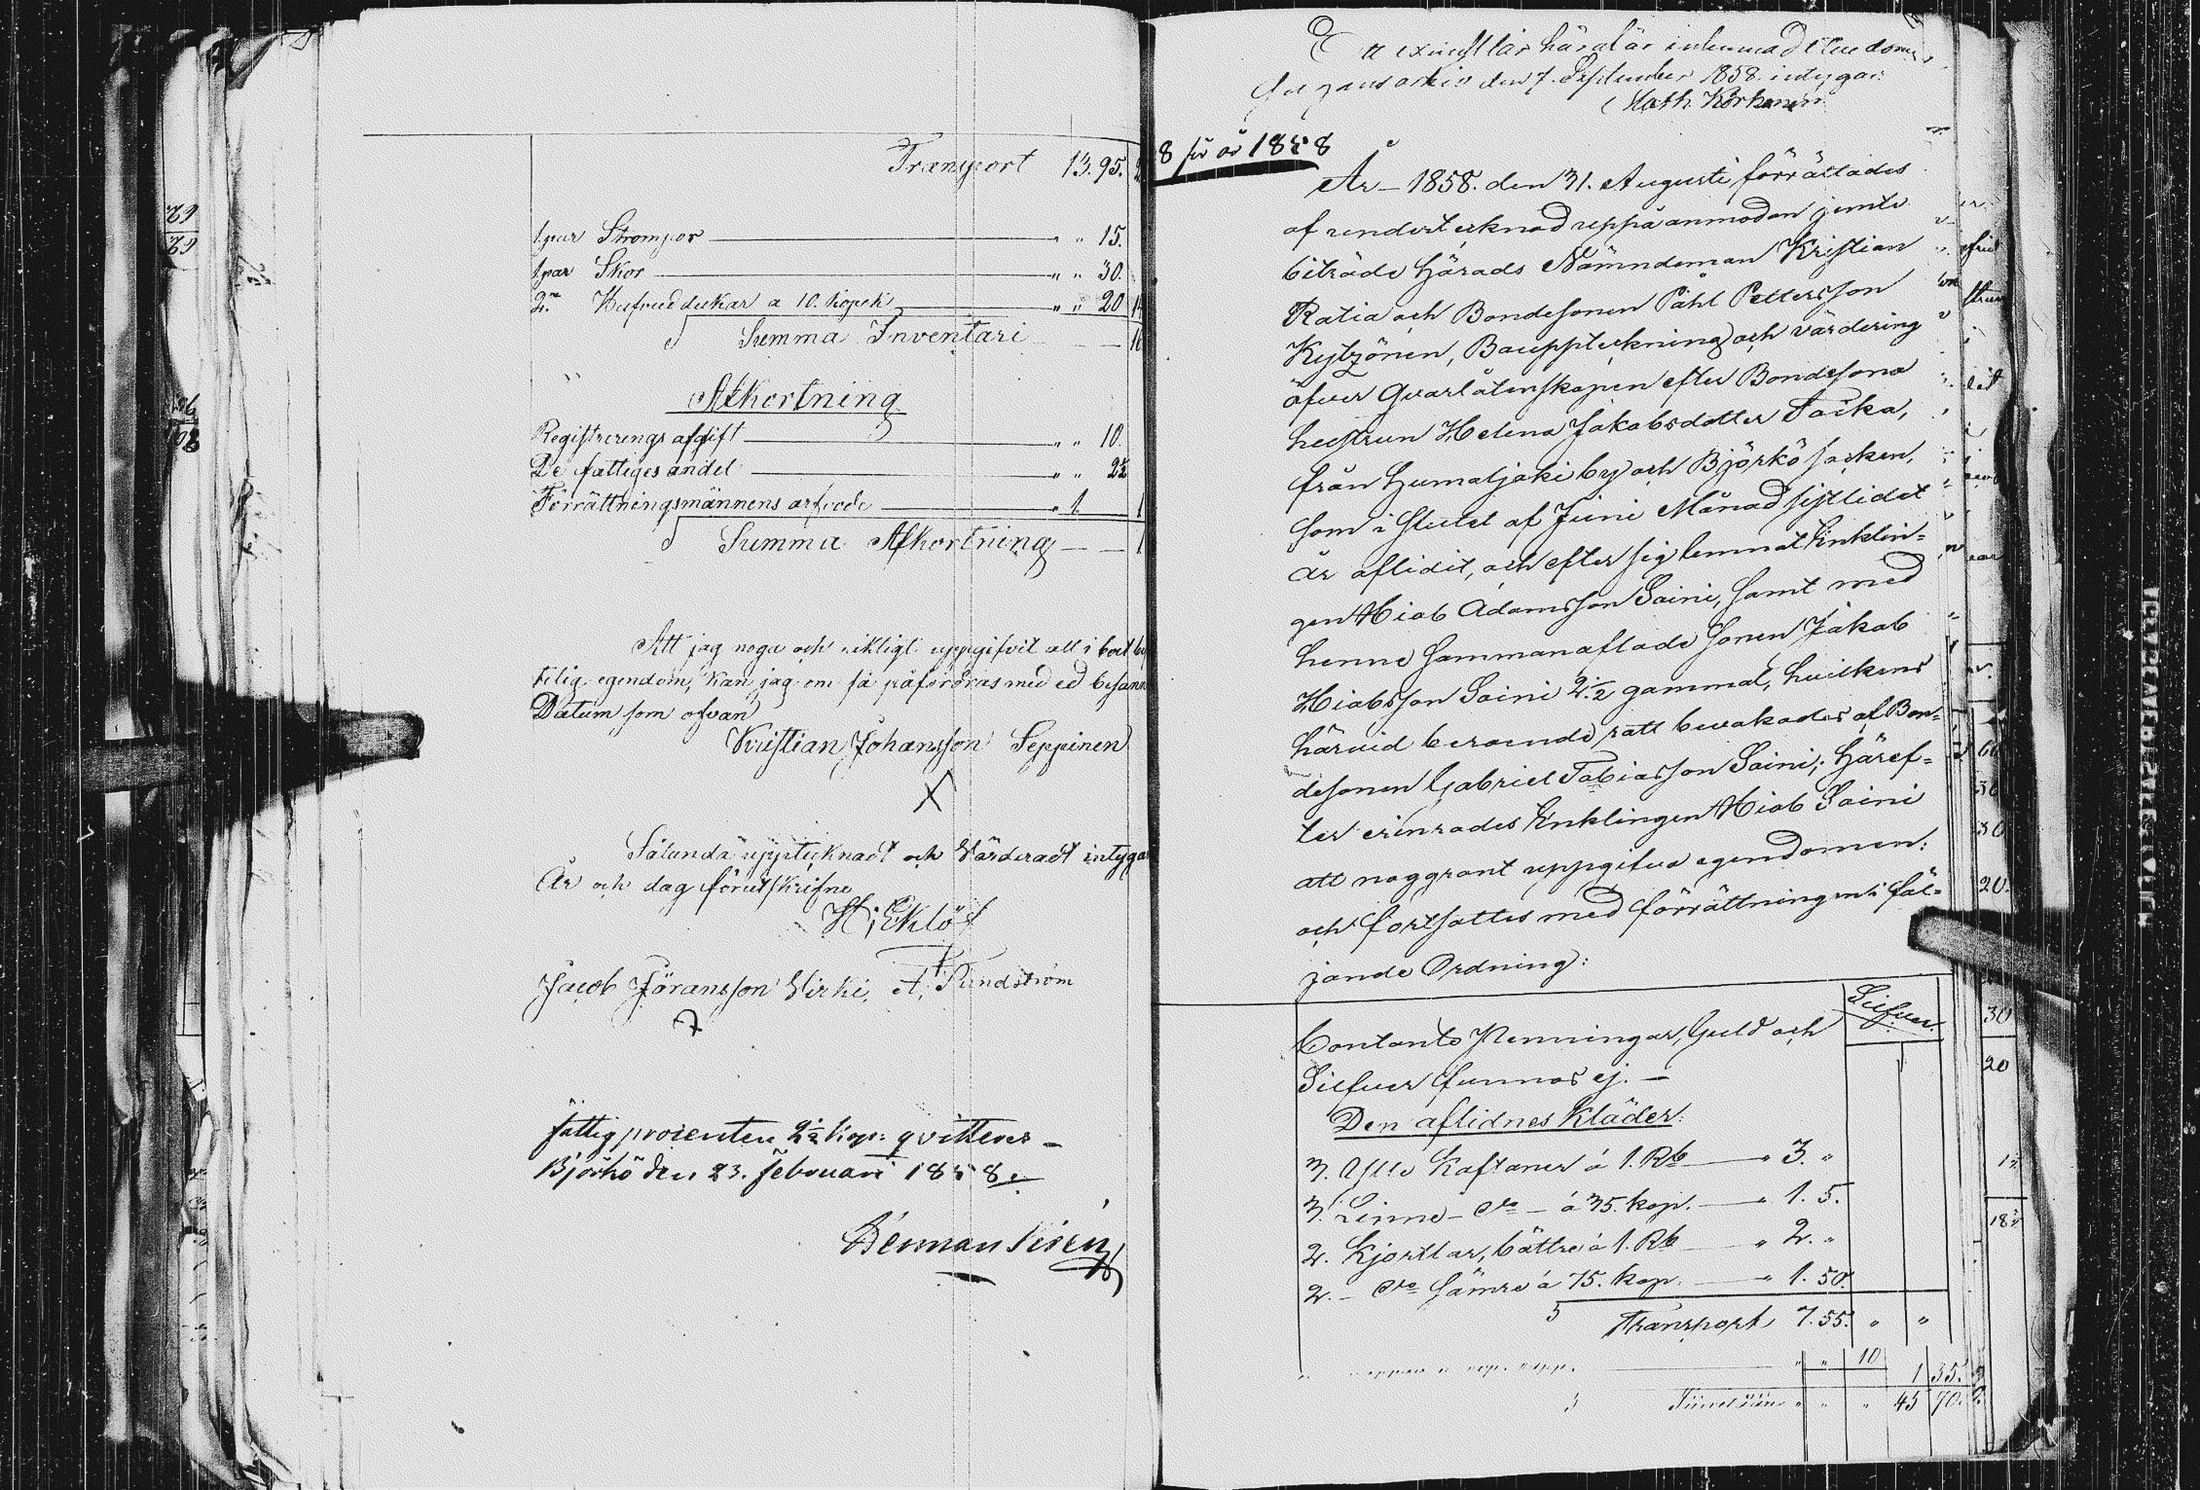 Transport 13. 95.
1 par Strumpor " " 15.
1 par Skor " " 30.
2ne Hufvuddukar a 10. kopek " " 20
Summa Inventari
Afkortning
Registrerings afgift " " 10.
De fattiges andel " " 2½
Förrättningsmännens arfvode " 1.
Summa Afkortning
Att jag noga och riktigt uppgifvit all i boet be
tilig egendom, kan jag om så påfordras med ed besann
Datum som ofvan
Kristian Johansson Seppinen
X
Sålunda upptecknadt och Värderadt intygar
År och dag förutskrifne
H. Eklöf
Jacob Jöransson Virki, A. Sundström
fattig procenten 2½ kop: qvitteras
Björkö den 23. Februari 1858.
Ett exemplar häraf är inlemnadt till doms
den 7. September 1858. intygar:
Math. Korhonen
8 för år 1858
År 1858. den 31. Augusti förrättades
af undertecknad uppå anmodan jemte
biträde Härads Nämndeman Kristian
Ratia och Bondesonen Påhl Pettersson
Kytzönen, Bouppteckning och värdering
öfver qvarlåtenskapen efter Bondesons
hustrun Helena Jakobsdotter Tocka,
från Humaljoki by och Björkö socken,
som i slutet af Juni Månad sistlidit
år aflidit, och efter sig lemnat Enklin=
gen Hiob Adamsson Saini, samt med
henne sammanaflade sonen Jakob
Hiobsson Saini 2½ gammal, hvilkens
härvid beroende rätt bevakades af Bon=
desonen Gabriel Tobiasson Saini; Häref=
ter erinrades Enklingen Hiob Saini
att noggrant uppgifva egendomen:
och fortsattes med förrättningen i föl=
jande Ordning:
Silfver.
Contanta Penningar, Guld och
Silfver funnos ej. —
Den aflidnes Kläder:
3. Ylle Kaftaner á 1. Rb " 3. "
3. Linne — do — á 35. kop. " 1. 5.
2. Kjortlar, bättre á 1. Rb " 2. "
2. — do sämre á 75. kop. " 1. 50.
Transport 7. 55. " "
10
1 35.
45 70.